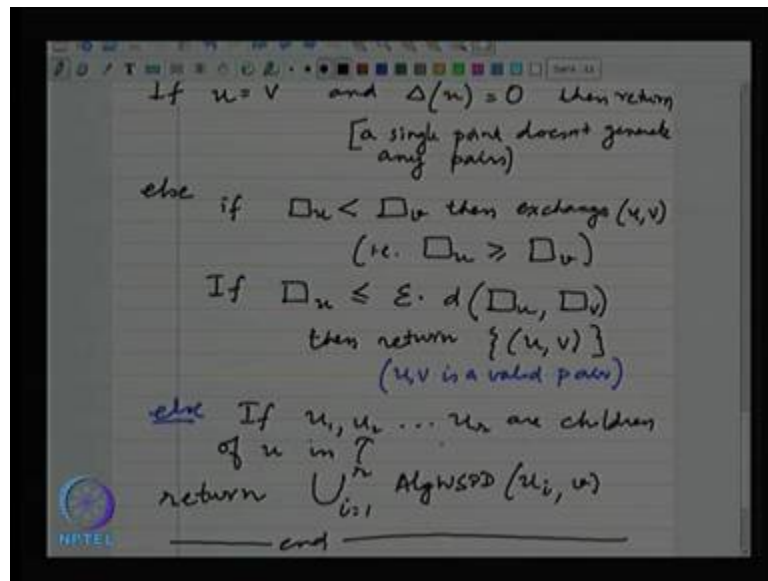 If u = v and Δ(u) = 0 then return
[a single point doesnt generate
any pairs)
else if □u < □v then exchange (u,v)
(ie. □u ⩾ □v)
If □u ≤ ε. d(□u, □v)
then return {(u,v)}
(u,v is a valid pair)
else If u1, u2 ... ur are children
of u in T
return ⋃ r i=1 AlgWSPD (ui, v)
end
NPTEL